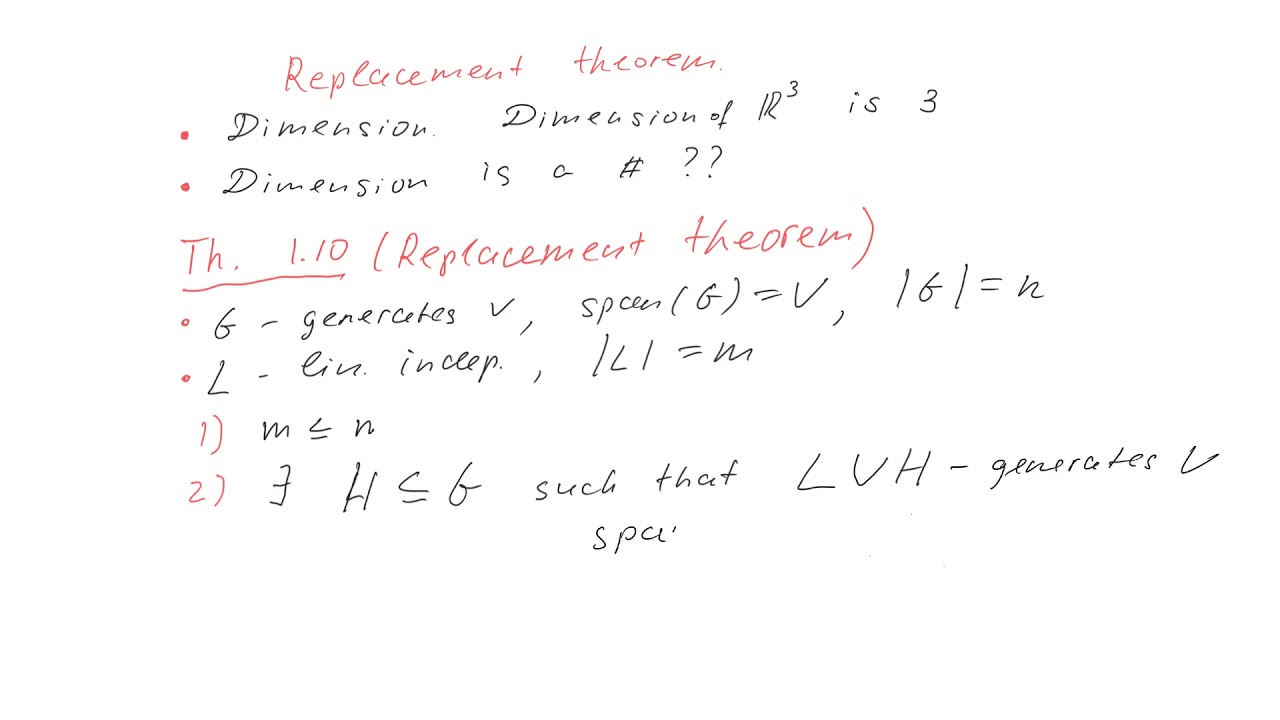 Replacement theorem.
• Dimension. Dimension of ℝ³ is 3
• Dimension is a # ??
Th. 1.10 (Replacement theorem)
• G - generates V, span(G) = V, |G| = n
• L - lin. indep., |L| = m
1) m ≤ n
2) ∃ H ⊆ G such that L ∪ H - generates V
spa